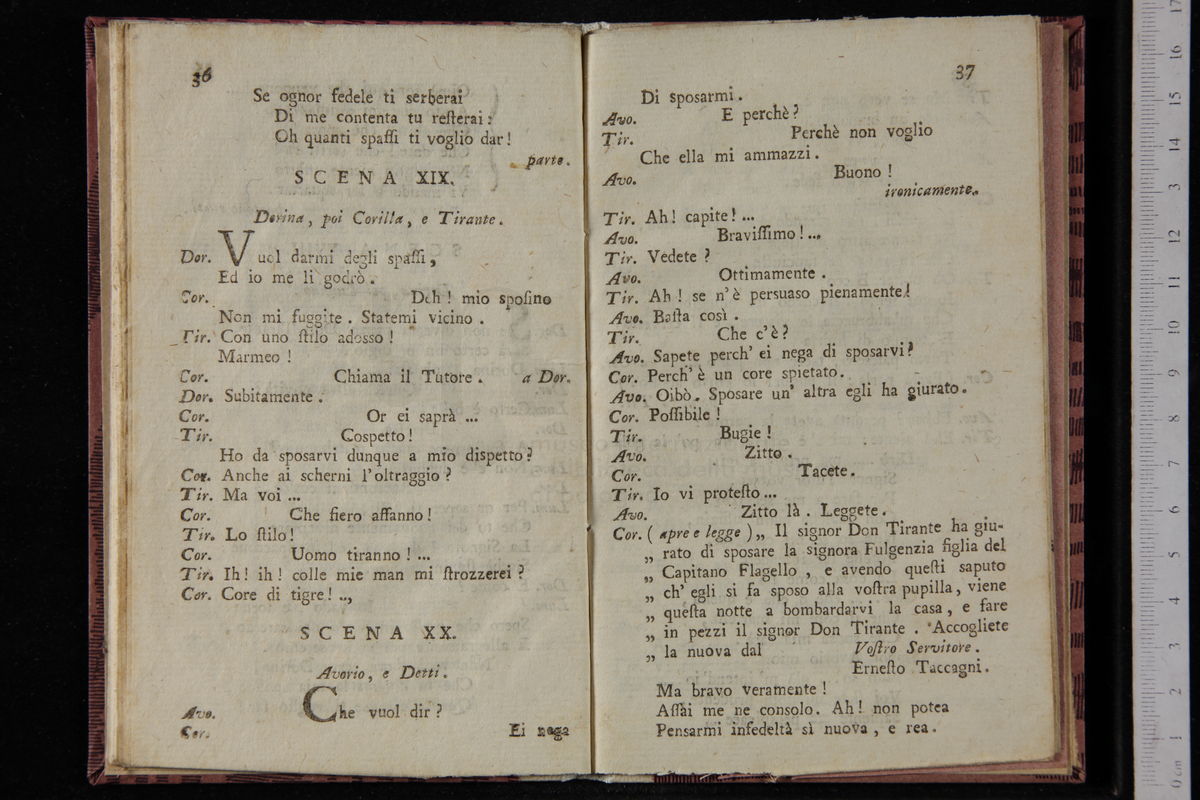 36
Se ognor fedele ti serberai
Di me contenta tu reſterai:
Oh quanti spaſſi ti voglio dar!
parte.
SCENA XIX.
Dorina, poi Corilla, e Tirante.
Dor. Vuol darmi degli spaſſi,
Ed io me li godrò.
Cor. Deh! mio spoſino
Non mi fuggite. Statemi vicino.
Tir. Con uno ſtilo adosso!
Marmeo!
Cor. Chiama il Tutore. a Dor.
Dor. Subitamente.
Cor. Or ei saprà ...
Tir. Cospetto!
Ho da sposarvi dunque a mio dispetto?
Cor. Anche ai scherni l'oltraggio?
Tir. Ma voi ...
Cor. Che fiero affanno!
Tir. Lo ſtilo!
Cor. Uomo tiranno! ...
Tir. Ih! ih! colle mie man mi ſtrozzerei?
Cor. Core di tigre! ..,
SCENA XX.
Avorio, e Detti.
Avo. Che vuol dir?
Cor. Ei nega
37
Di sposarmi.
Avo. E perchè?
Tir. Perchè non voglio
Che ella mi ammazzi.
Avo. Buono!
ironicamente.
Tir. Ah! capite! ...
Avo. Braviſſimo! ...
Tir. Vedete?
Avo. Ottimamente.
Tir. Ah! se n'è persuaso pienamente!
Avo. Baſta così.
Tir. Che c'è?
Avo. Sapete perch' ei nega di sposarvi?
Cor. Perch' è un core spietato.
Avo. Oibò. Sposare un' altra egli ha giurato.
Cor. Poſſibile!
Tir. Bugie!
Avo. Zitto.
Cor. Tacete.
Tir. Io vi proteſto ...
Avo. Zitto là. Leggete.
Cor. (apre e legge) „ Il signor Don Tirante ha giu-
„ rato di sposare la signora Fulgenzia figlia del
„ Capitano Flagello, e avendo queſti saputo
„ ch' egli si fa sposo alla voſtra pupilla, viene
„ queſta notte a bombardarvi la casa, e fare
„ in pezzi il signor Don Tirante. Accogliete
„ la nuova dal Voſtro Servitore.
Erneſto Taccagni.
Ma bravo veramente!
Aſſai me ne consolo. Ah! non potea
Pensarmi infedeltà sì nuova, e rea.
0 cm 1 2 3 4 5 6 7 8 9 10 11 12 13 14 15 16 17